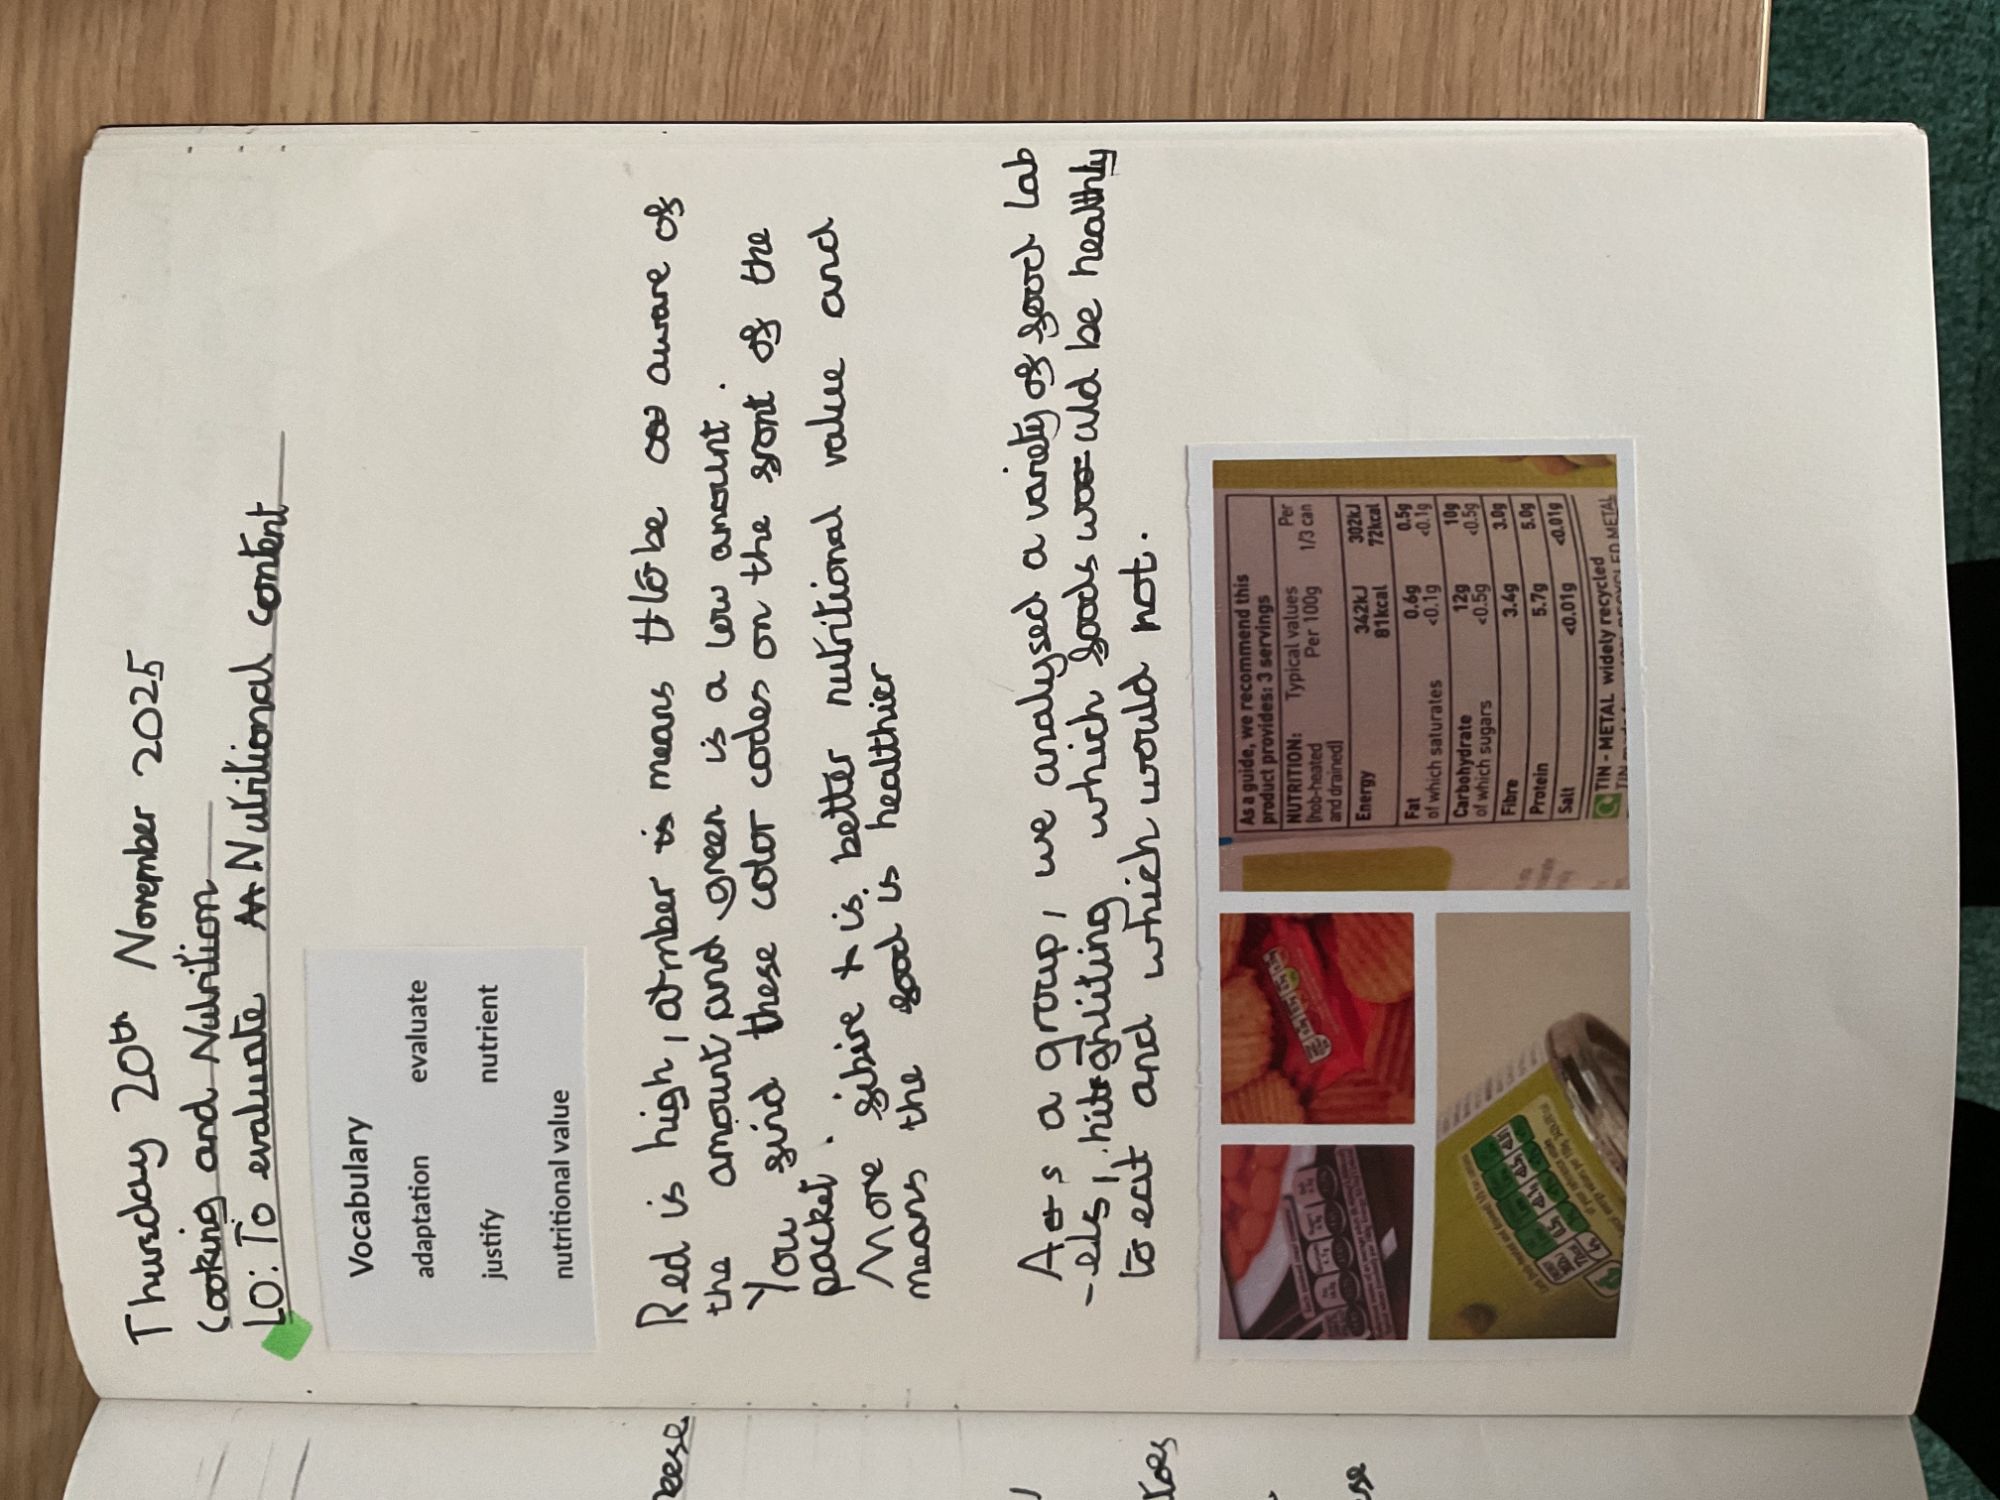 Thursday 20th November 2025
Cooking and Nutrition
LO: To evaluate Nutritional content
Vocabulary
adaptation evaluate
justify nutrient
nutritional value
Red is high, amber is means to be aware of
the amount and green is a low amount.
You find these color codes on the front of the
packet.
More fibire is better nutritional value and
means the food is healthier
As a group, we analysed a variety of food lab
-els, highliting which foods would be healthy
to eat and which would not.
As a guide, we recommend this
product provides: 3 servings
NUTRITION: Typical values Per
(hob-heated Per 100g 1/3 can
and drained)
Energy 342kJ 302kJ
81kcal 72kcal
Fat 0.6g 0.5g
of which saturates <0.1g <0.1g
Carbohydrate 12g 10g
of which sugars <0.5g <0.5g
Fibre 3.4g 3.0g
Protein 5.7g 5.0g
Salt <0.01g <0.01g
TIN - METAL widely recycled